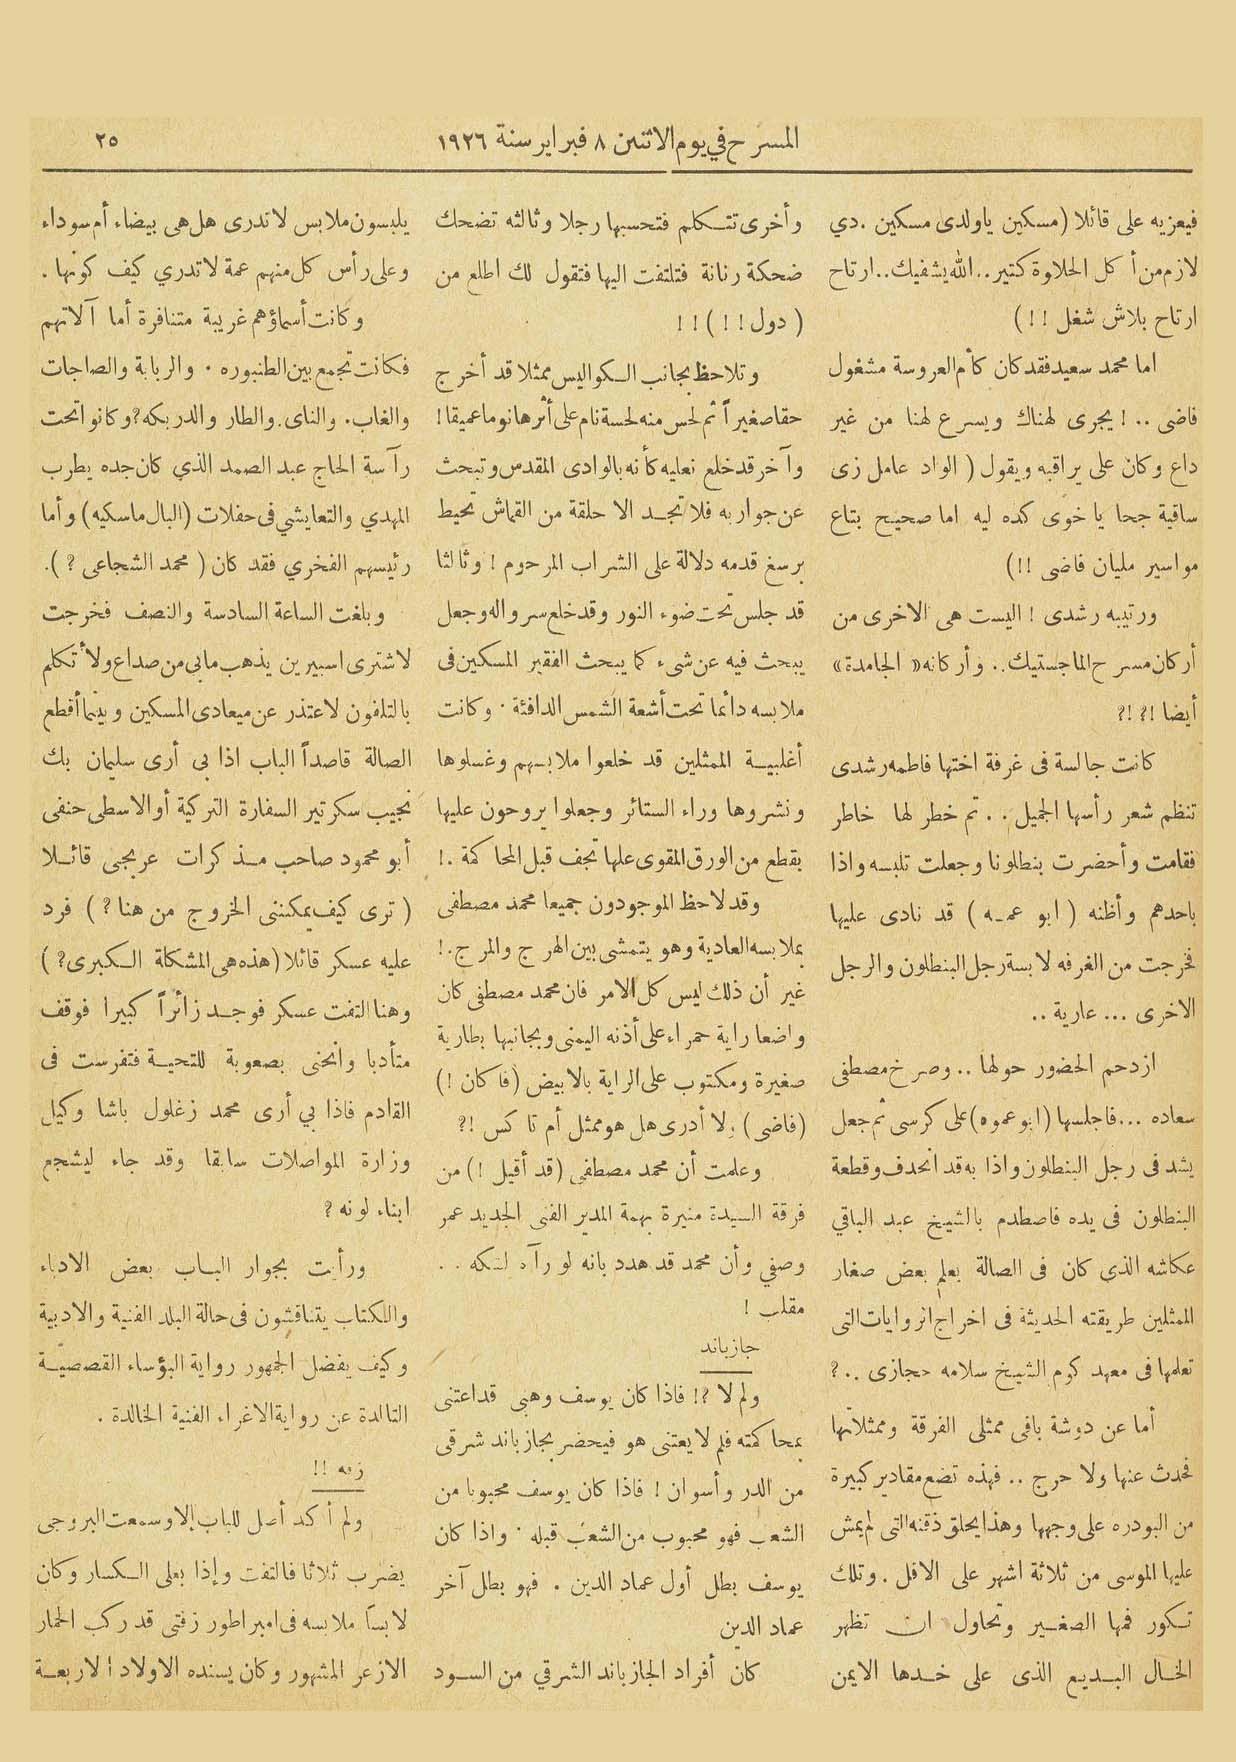 المسرح في يوم الاثنين ٨ فبراير سنة ١٩٢٦
٢٥
فيعزيه على قائلا (مسكين ياولدى مسكين . دي
لازم من أكل الحلاوة كتير .. الله يشفيك .. ارتاح
ارتاح بلاش شغل !!)
اما محمد سعيد فقد كان كأم العروسة مشغول
فاضى .. ! يجرى لهناك ويسرع لهنا من غير
داع وكان على يراقبه ويقول ( الواد عامل زى
ساقية جحا يا خوى كده ليه اما صحيح بتاع
مواسير مليان فاضى !!)
ورتيبه رشدى ! اليست هى الاخرى من
أركان مسرح الماجستيك .. وأركانه « الجامدة »
أيضا !? !?
كانت جالسة فى غرفة اختها فاطمه رشدى
تنظم شعر رأسها الجميل .. تم خطر لها خاطر
فقامت وأحضرت بنطلونا وجعلت تلبسه واذا
باحدهم وأظنه ( ابو عمـه ) قد نادى عليها
فخرجت من الغرفه لابسة رجل البنطلون والرجل
الاخرى ... عارية ..
ازدحم الحضور حولها .. وصرخ مصطفى
سعاده ... فاجلسها (ابو عموه) على كرسى ثم جعل
يشد فى رجل البنطلون واذا به قد انحدف وقطعة
البنطلون فى يده فاصطدم بالشيخ عبد الباقي
عكاشه الذى كان فى الصالة يعلم بعض صغار
الممثلين طريقته الحديثة فى اخراج الروايات التى
تعلمها فى معهد كوم الشيخ سلامه حجازى .. ?
أما عن دوشة باقى ممثلى الفرقة وممثلاتها
فحدث عنها ولا حرج .. فهذه تضع مقادير كبيرة
من البودره على وجهها وهذا يحلق ذقنه التى لم يمش
عليها الموسى من ثلاثة اشهر على الاقل . وتلك
تكور فمها الصغير وتحاول ان تظهر
الخال البديع الذى على خدها الايمن
وأخرى تتكلم فتحسبها رجلا وثالثه تضحك
ضحكة رنانة فتلتفت اليها فتقول لك اطلع من
( دول !! ) !!
وتلاحظ بجانب الكواليس ممثلا قد أخرج
حقا صغيراً ثم لحس منه لحسة نام على أثرها نوما عميقا !
وآخر قد خلع نعليه كأنه بالوادى المقدس وتبحث
عن جواربه فلا تجد الا حلقة من القماش تحيط
برسغ قدمه دلالة على الشراب المرحوم ! وثالثا
قد جلس تحت ضوء النور وقد خلع سرواله وجعل
يبحث فيه عن شىء كما يبحث الفقير المسكين فى
ملابسه دائما تحت أشعة الشمس الدافئة . وكانت
أغلبية الممثلين قد خلعوا ملابسهم وغسلوها
ونشروها وراء الستائر وجعلوا يروحون عليها
بقطع من الورق المقوى علها تجف قبل المحاكمة . !
وقد لاحظ الموجودون جميعا محمد مصطفى
بملابسه العادية وهو يتمشى بين الهرج والمرج . !
غير أن ذلك ليس كل الامر فان محمد مصطفى كان
واضعا راية حمراء على أذنه اليمنى وبجانبها بطارية
صغيرة ومكتوب على الراية بالابيض (فا كان !)
(فاضى) ولا أدرى هل هو ممثل أم تاكس !?
وعلمت أن محمد مصطفى (قد أقيل !) من
فرقة السيدة منيرة بهمة المدير الفنى الجديد عمر
وصفي وأن محمد قد هدد بانه لو رآه لنكه ..
مقلب !
جازباند
ولم لا ?! فاذا كان يوسف وهبى قد اعتنى
بمحاكمته فلم لا يعتنى هو فيحضر بجازباند شرقى
من الدر وأسوان ! فاذا كان يوسف محبوبا من
الشعب فهو محبوب من الشعب قبله . واذا كان
يوسف بطل أول عماد الدين . فهو بطل آخر
عماد الدين
كان أفراد الجازباند الشرقي من السود
يلبسون ملابس لا تدرى هل هى بيضاء أم سوداء
وعلى رأس كل منهم عمة لا تدري كيف كونها .
وكانت أسماؤهم غريبة متنافرة أما آلاتهم
فكانت تجمع بين الطنبوره . والربابة والصاجات
والغاب . والناى . والطار والدربكه? وكانوا تحت
رآسة الحاج عبد الصمد الذي كان جده يطرب
المهدي والتعايشي فى حفلات (البال ماسكيه) وأما
رئيسهم الفخري فقد كان ( محمد الشجاعى ? ).
وبلغت الساعة السادسة والنصف فخرجت
لاشترى اسبيرين يذهب مابى من صداع ولأتكلم
بالتلفون لاعتذر عن ميعادى المسكين وبينما أقطع
الصالة قاصداً الباب اذا بى أرى سليمان بك
نجيب سكرتير السفارة التركية أو الاسطى حنفى
أبو محمود صاحب مذكرات عربجى قائلا
( ترى كيف يمكننى الخروج من هنا ? ) فرد
عليه عسكر قائلا (هذه هى المشكلة الكبرى ? )
وهنا التفت عسكر فوجد زائراً كبيرا فوقف
متأدبا وانحنى بصعوبة للتحية فتفرست فى
القادم فاذا بي أرى محمد زغلول باشا وكيل
وزارة المواصلات سابقا وقد جاء ليشجع
ابناء لونه ?
ورأيت بجوار الباب بعض الادباء
والكتاب يتناقشون فى حالة البلد الفنية والادبية
وكيف يفضل الجمهور رواية البؤساء القصصيّة
التالدة عن رواية الاغراء الفنية الخالدة .
زفه !!
ولم أكد أصل للباب إلا وسمعت البروجى
يضرب ثلاثا فالتفت وإذا بعلى الكسار وكان
لابسًا ملابسه فى امبراطور زفتى قد ركب الحمار
الازعر المشهور وكان يسنده الاولاد الاربعة